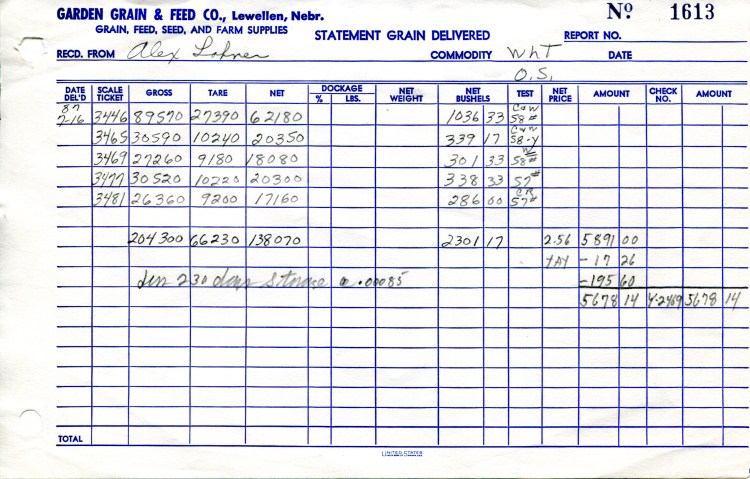 GARDEN GRAIN & FEED CO., Lewellen, Nebr. Nº 1613
GRAIN, FEED, SEED, AND FARM SUPPLIES STATEMENT GRAIN DELIVERED REPORT NO.
RECD. FROM Alex Lohner COMMODITY WhT DATE
O.S.
DATE DEL'D SCALE TICKET GROSS TARE NET DOCKAGE % LBS. NET WEIGHT NET BUSHELS TEST NET PRICE AMOUNT CHECK NO. AMOUNT
87
7-16 3446 89570 27390 62180 1036 33 C&W 58#
3465 30590 10240 20350 339 17 C&W 58-Y
3469 27260 9180 18080 301 33 W 58#
3477 30520 10220 20300 338 33 57#
3481 26360 9200 17160 286 00 CR 57#
204300 66230 138070 2301 17 2.56 5891 00
TAY -17 26
Less 230 days Storage @ .00085 -195 60
5678 14 4-2469 5678 14
TOTAL